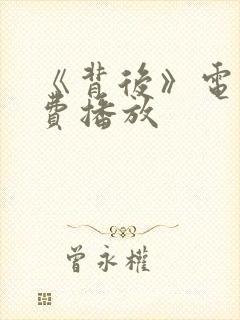 《背後》電
費播放
曾永權